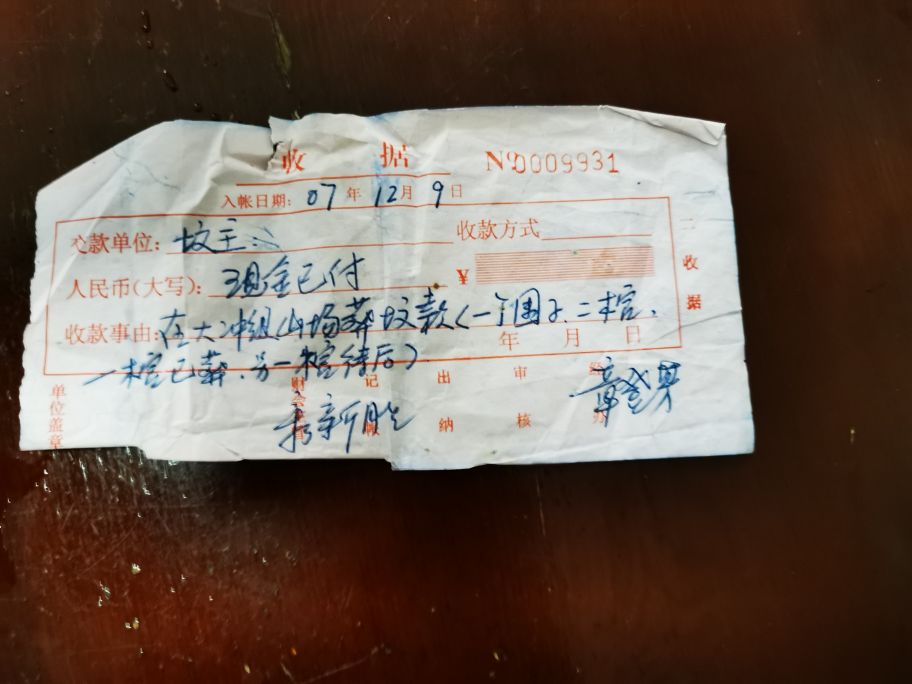 收 据 №0009931
入帐日期：07年12月9日
交款单位：坟主： 收款方式
人民币(大写)：现金已付 ¥
收款事由：在大冲组山场葬坟款(一个圈子二棺、
年 月 日
一棺已葬、另一棺待后)
二收据
单位盖章 财会 记帐 出纳 审核 经办
新 章